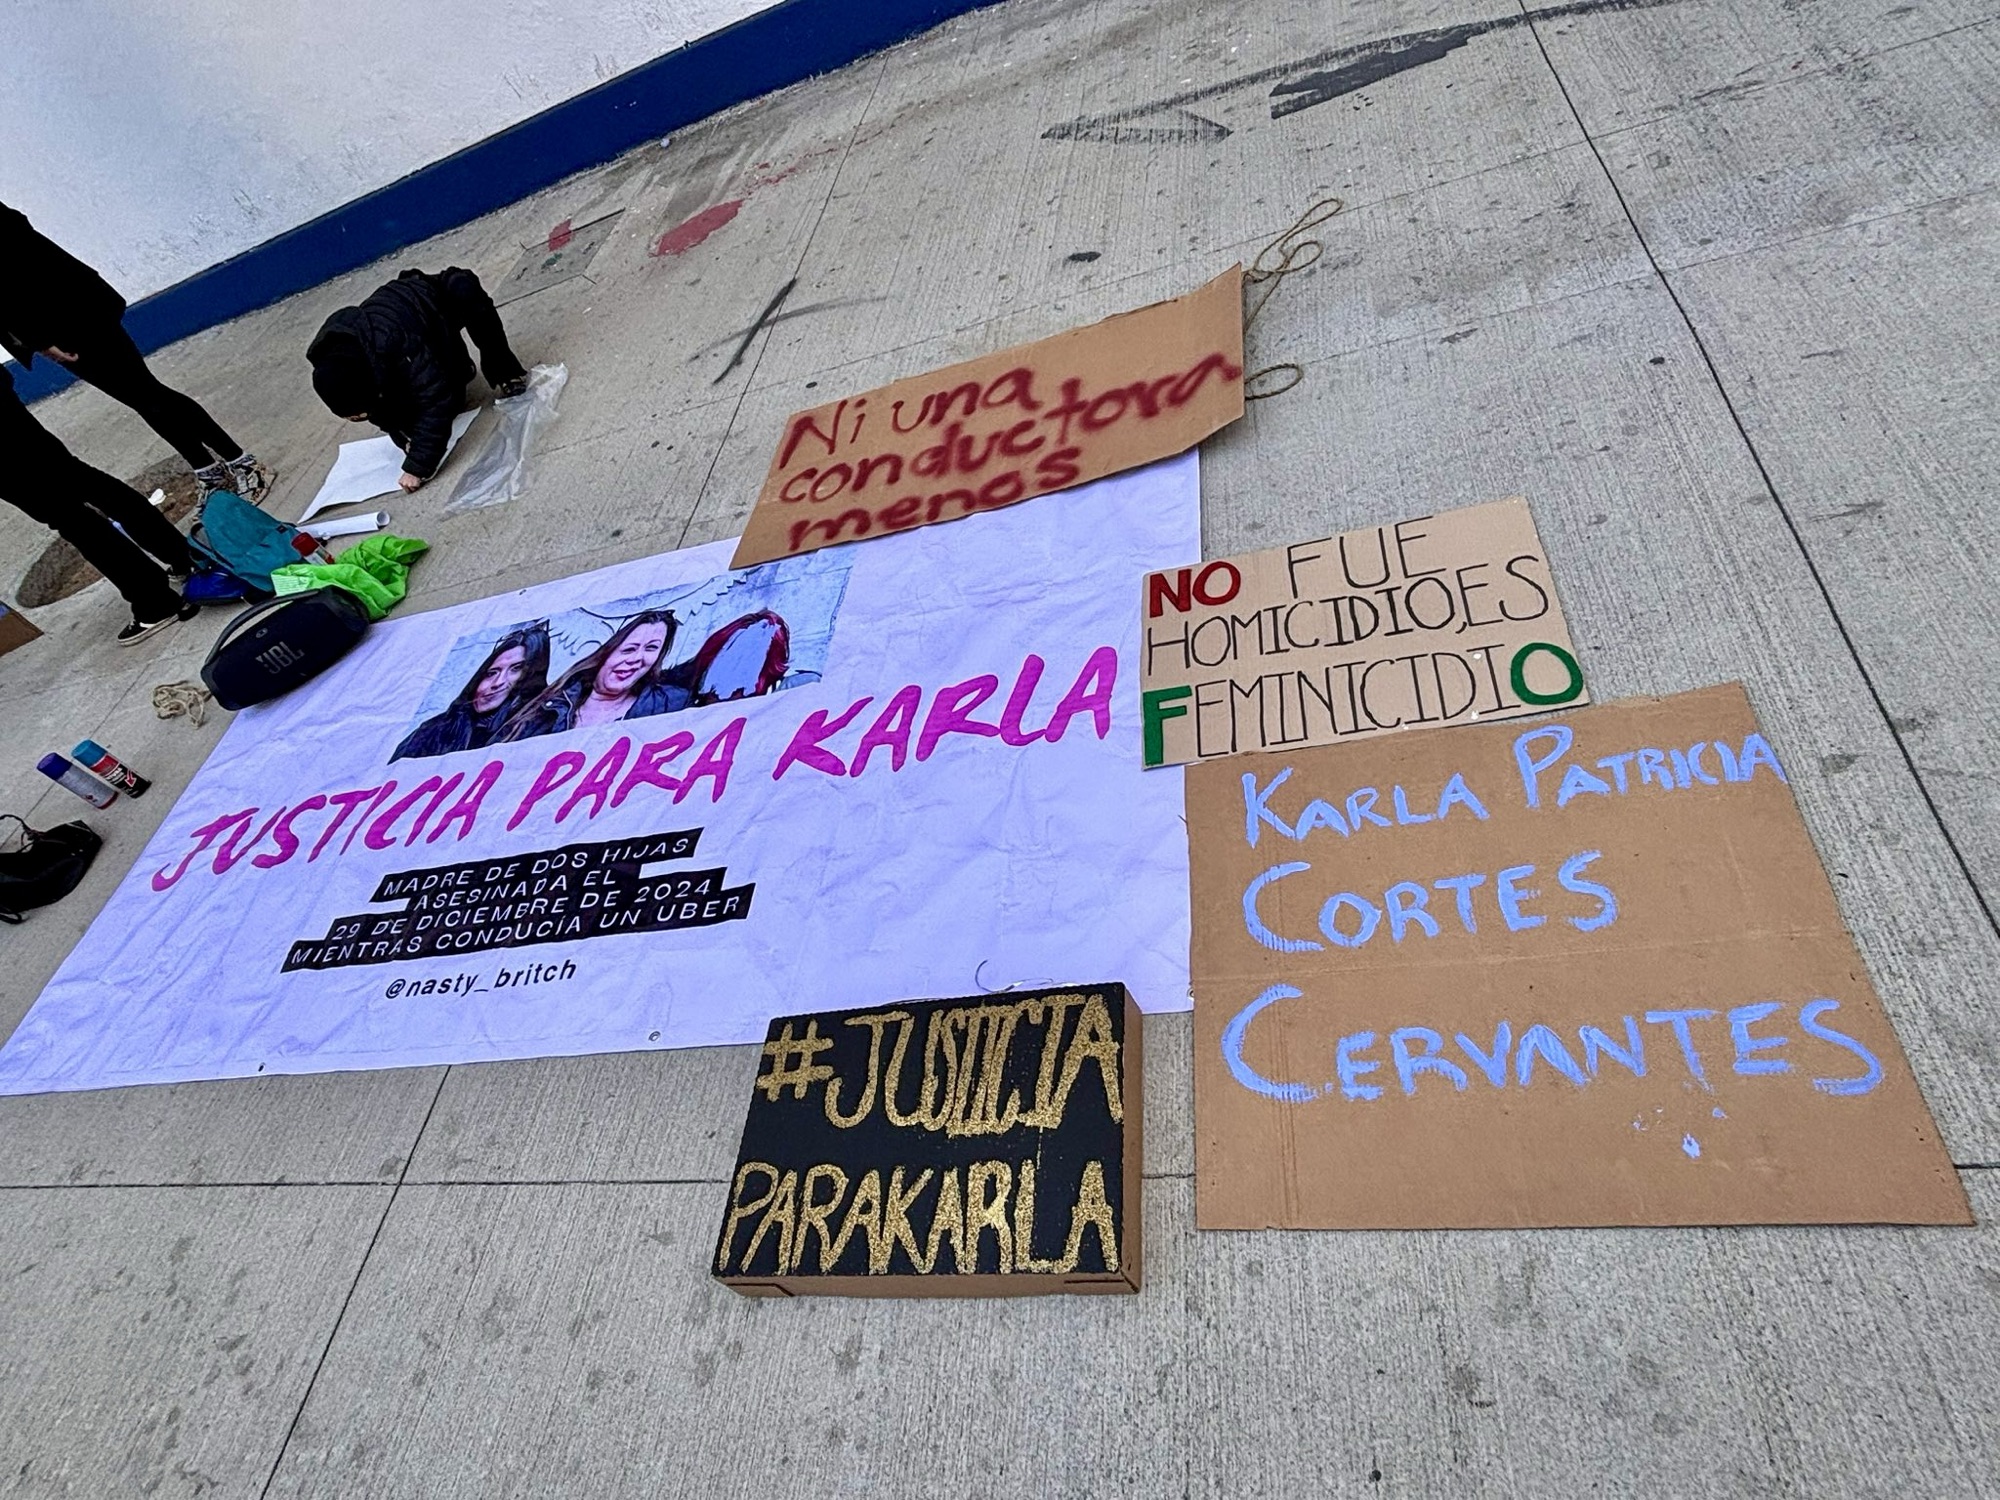 Ni una
conductora
menos
NO FUE
HOMICIDIO,ES
FEMINICIDIO
JBL
JUSTICIA PARA KARLA
MADRE DE DOS HIJAS
ASESINADA EL
29 DE DICIEMBRE DE 2024
MIENTRAS CONDUCÍA UN UBER
@nasty_britch
KARLA PATRICIA
CORTES
CERVANTES
#JUSTICIA
PARAKARLA